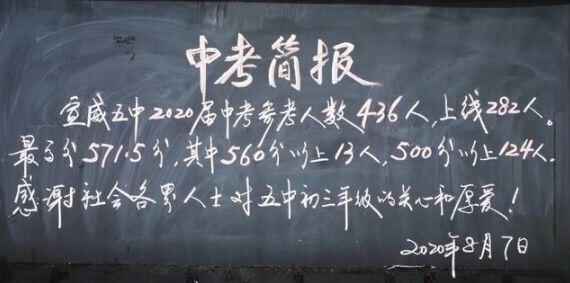 中考简报
宣威五中2020届中考参考人数436人,上线282人。
最高分571.5分,其中560分以上13人,500分以上124人.
感谢社会各界人士对五中初三年级的关心和厚爱!
2020年8月7日